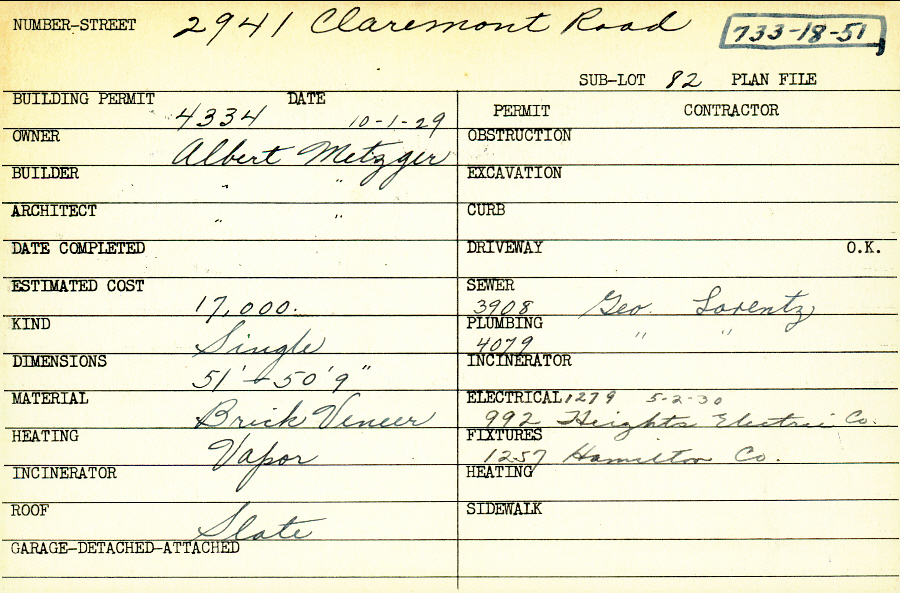 NUMBER-STREET 2941 Claremont Road 733-18-51
SUB-LOT 82 PLAN FILE
BUILDING PERMIT 4334 DATE 10-1-29
OWNER Albert Metzger
BUILDER " "
ARCHITECT " "
DATE COMPLETED
ESTIMATED COST 17,000.
KIND Single
DIMENSIONS 51' - 50'9"
MATERIAL Brick Veneer
HEATING Vapor
INCINERATOR
ROOF Slate
GARAGE-DETACHED-ATTACHED
PERMIT CONTRACTOR
OBSTRUCTION
EXCAVATION
CURB
DRIVEWAY O.K.
SEWER
3908 Geo. Lorentz
PLUMBING
4079 " "
INCINERATOR
ELECTRICAL 1279 5-2-30
992 Heights Electric Co.
FIXTURES
1257 Hamilton Co.
HEATING
SIDEWALK